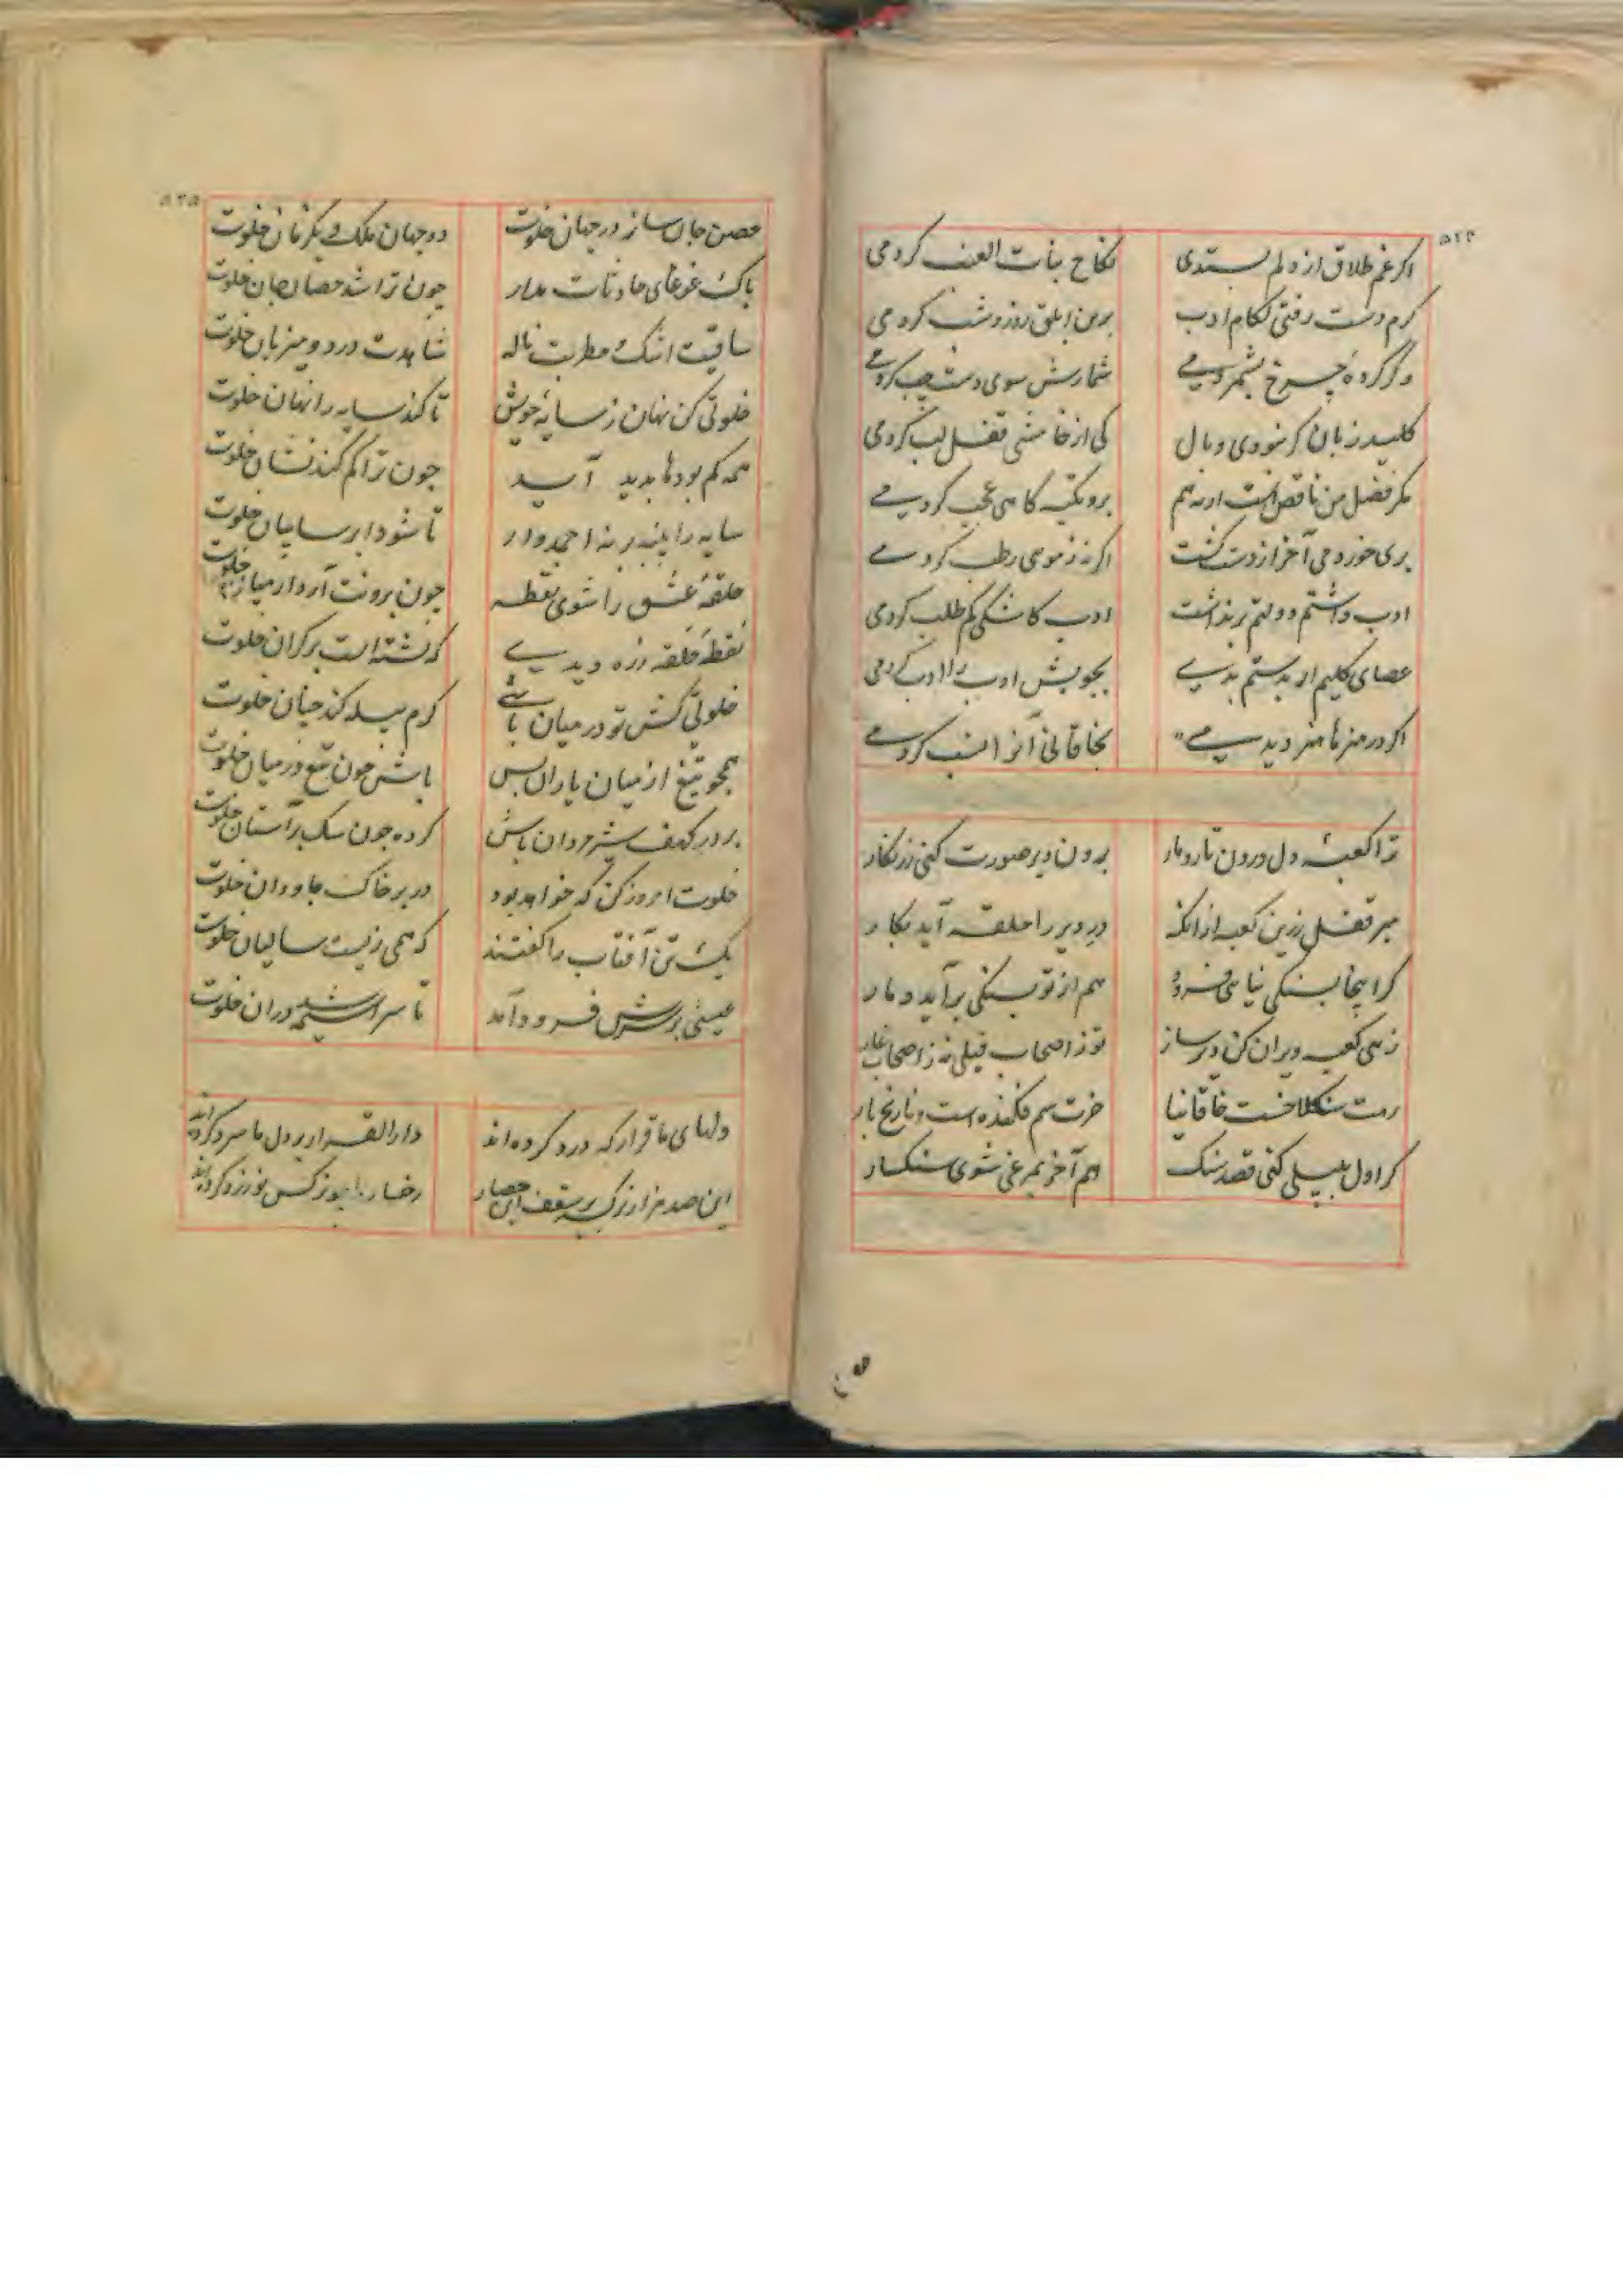 ۵۲۴
اکر غم طلاق از دلم بستدی نکاح بنات العنب کردمی
کرم دست رفتی لکام ادب برین ابلق روز و شب کردمی
و کر کرده چرخ بشمردمی شمارش سوی دست چب کردمی
کلید زبان کر نبودی وبال کی از خامشی قفل لب کردمی
مکر فضل من ناقص است ارنه هم برو تکیه کاهی عجب کردمی
بری خوردمی آخر از دست کشت اکر نه ز مومی رطب کردمی
ادب داشتم دولتم بر نداشت ادب کاشکی کم طلب کردمی
عصای کلیم ار بدستم بدی بچوبش ادب را ادب کردمی
اکر در هنرها هنر دیدمی بخاقانی آنرا نسب کردمی
ترا کعبه دل درون تارومار برون دیر صورت کنی زرنکار
مبر قفل زرین کعبه ازانکه در دیر را حلقه آید بکار
کر اینجا بسنکی نیایی فرود هم از تو بسنکی برآید دمار
زهی کعبه ویران کن دیرساز تو ز اصحاب فیلی نه ز اصحاب غار
رهت سنکلاخست خاقانیا خرت سم فکنده است و نارنج بار
کر اول بپیلی کنی قصد سنک هم آخر بمرغی شوی سنکسار
۵۲۵
حصن جان ساز در جهان خلوت دو جهان ملک و یکزمان خلوت
باک غوغای حادثات مدار چون ترا شد حصار جان خلوت
ساقیت اشک و مطربت ناله شاهدت درد و میزبان خلوت
خلوتی کن نهان ز سایه خویش تا کند سایه را نهان خلوت
همه کم بودها بدید آید چون ترا کم کند نشان خلوت
سایه را بنبه برنه احمدوار تا شود ابر سایبان خلوت
حلقه عشق را شوی نقطه چون برونت آرد از میان خلوت
نقطه حلقه زره دیدی که نشسته است بر کران خلوت
خلوتی کش تو در میان باشی کرم پیله کند چنان خلوت
همچو تیغ از میان یاران بس باش چون تیغ در میان خلوت
بر در کهف شیرمردان باش کرده چون سک بر آستان خلوت
خلوت امروز کن که خواهد بود در بر خاک جاودان خلوت
یک تن آفتاب را کفتند که همی زیست سالیان خلوت
عیسی برسرش فرود آمد تا سرآمدش دران خلوت
دلهای ما قرارکه درد کرده اند دارالقرار بر دل ما سرد کرده اند
این صد هزار نرکسه بر سقف این حصار رخسار ما چو نرکس نو زرد کرده اند